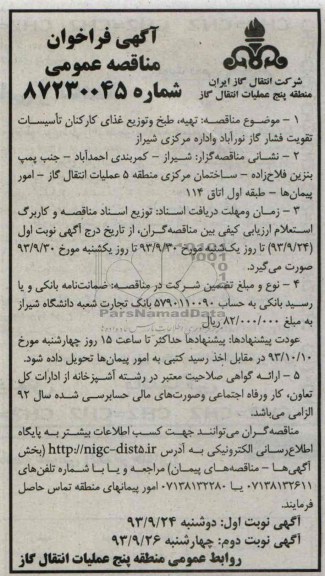 آگهی فراخوان
مناقصه عمومی
شماره ۸۷۲۳۰۰۴۵
شرکت انتقال گاز ایران
منطقه پنج عملیات انتقال گاز
۱ – موضوع مناقصه: تهیه، طبخ وتوزیع غذای کارکنان تأسیسات
تقویت فشار گاز نورآباد واداره مرکزی شیراز
۲ – نشانی مناقصه‌گزار: شیراز – کمربندی احمدآباد – جنب پمپ
بنزین فلاح‌زاده – ساختمان مرکزی منطقه ۵ عملیات گاز – امور
پیمان‌ها – طبقه اول اتاق ۱۱۴
۳ – زمان ومهلت دریافت اسناد: توزیع اسناد مناقصه و کاربرگ
استعلام ارزیابی کیفی بین مناقصه‌گران، از تاریخ درج آگهی نوبت اول
(۹۳/۹/۲۴) تا روز یک‌شنبه مورخ ۹۳/۹/۳۰ تا روز یکشنبه مورخ ۹۳/۹/۳۰
صورت می‌گیرد.
۴ – نوع و مبلغ تضمین شرکت در مناقصه: ضمانت‌نامه بانکی و یا
رسید بانکی به حساب ۵۷۹۰۱۱۰۰۹۰ بانک تجارت شعبه دانشگاه شیراز
به مبلغ ۸۲/۰۰۰/۰۰۰ ریال
ParsNamadData
عودت پیشنهادها: پیشنهادها حداکثر تا ساعت ۱۵ روز چهارشنبه مورخ
۹۳/۱۰/۱۰ در مقابل اخذ رسید کتبی به امور پیمان‌ها تحویل داده شود.
۵ – ارائه گواهی صلاحیت معتبر در رشته آشپزخانه از ادارات کل
تعاون، کار ورفاه اجتماعی وصورت‌های مالی حسابرسی شده سال ۹۲
الزامی می‌باشد.
مناقصه‌گران می‌توانند جهت کسب اطلاعات بیشتر به پایگاه
اطلاع‌رسانی الکترونیکی به آدرس http://nigc-dist5.ir (بخش
آگهی‌ها – مناقصه‌های پیمان) مراجعه و یا با شماره تلفن‌های
۰۷۱۳۸۱۳۲۶۱۱ یا ۰۷۱۳۸۱۳۲۲۸۰ امور پیمانهای منطقه تماس حاصل
فرمایند.
آگهی نوبت اول: دوشنبه ۹۳/۹/۲۴
آگهی نوبت دوم: چهارشنبه ۹۳/۹/۲۶
روابط عمومی منطقه پنج عملیات انتقال گاز